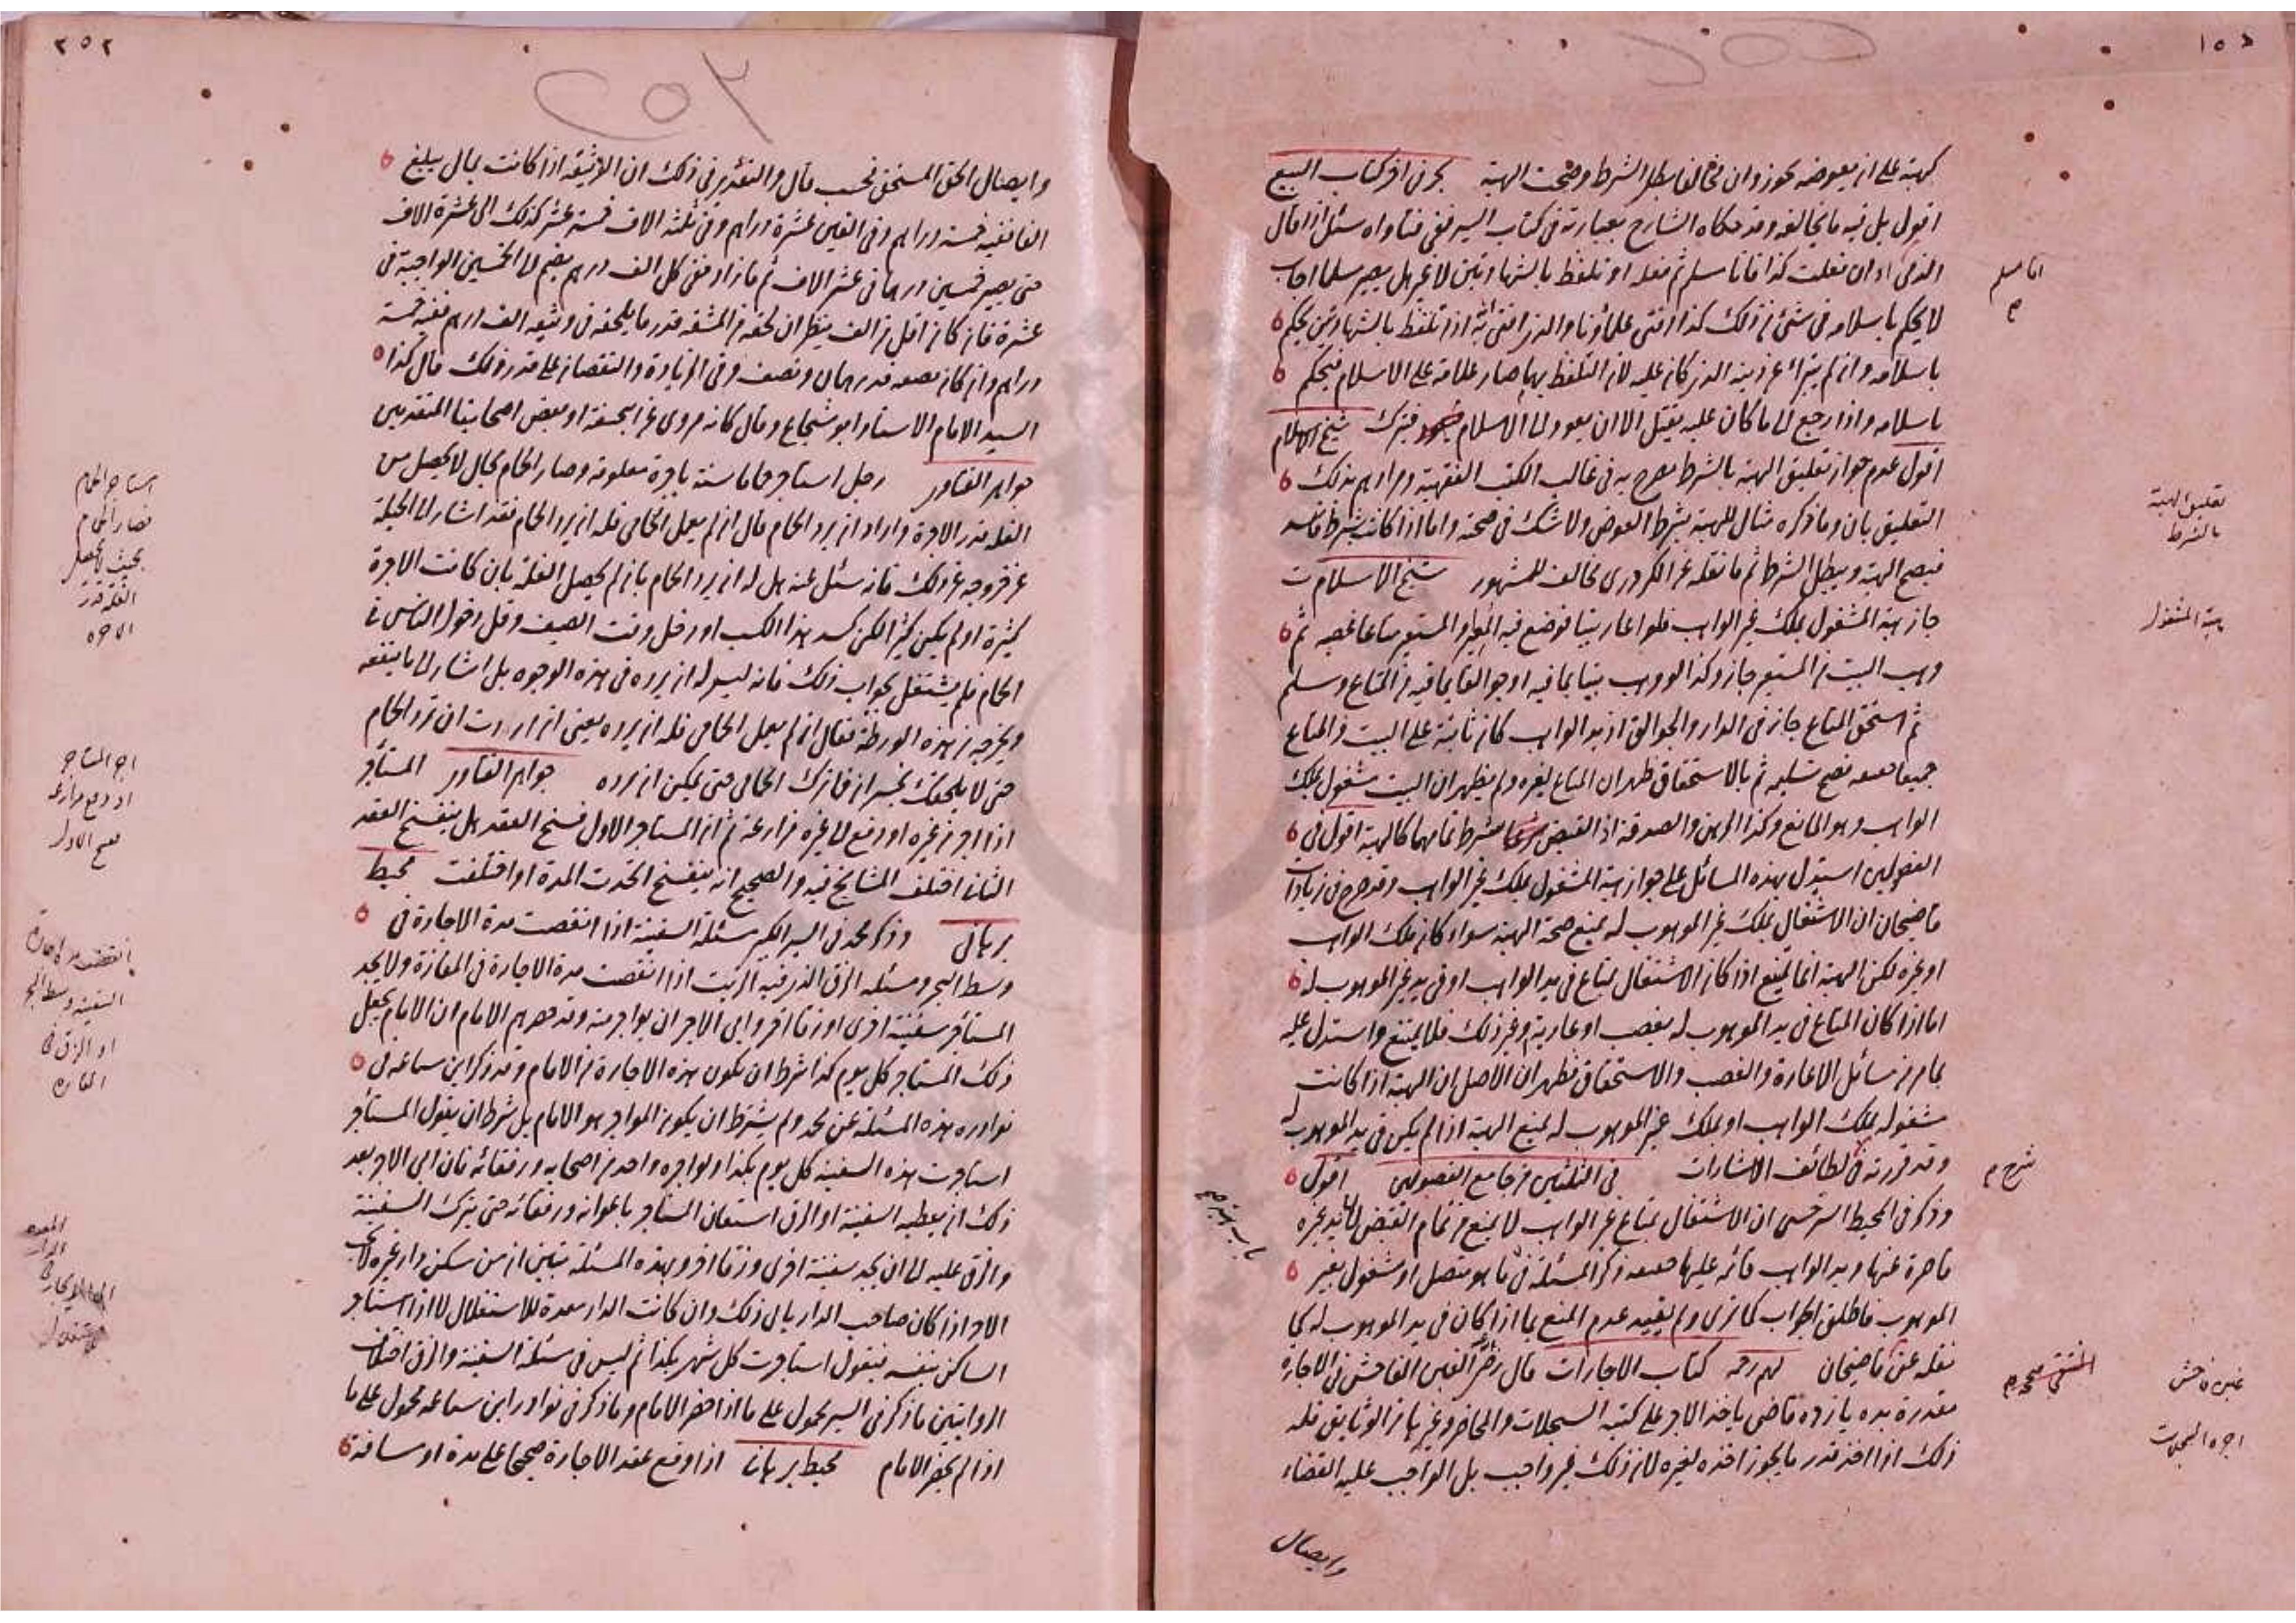 كهبة على ان يعوضه يجوز وان مخالفا بطل الشرط وصحت الهبة بحر في اخر كتاب البيع
اقول بل فيه ما يخالفه وقد حكاه الشارح بعبارته في كتاب السير ففي فتاواه سئل اذا قال
الذمي اذا ان فعلت كذا فانا مسلم ثم فعله او تلفظ بالشهادتين لا غير هل يصير مسلما اجاب
لا يحكم باسلامه في شئ من ذلك كذا افتى علماؤنا والذي افتي به اذا تلفظ بالشهادتين يحكم
باسلامه وان لم يتبرأ عن دينه الذي كان عليه لان التلفظ بهما صار علامة على الاسلام فيحكم
باسلامه واذا رجع الى ما كان عليه يقتل الا ان يعود الى الاسلام فيترك شيخ الاسلام
اقول عدم جواز تعليق الهبة بالشرط مصرح به في غالب الكتب الفقهية ومرادهم بذلك
التعليق بان وما ذكره مثال للهبة بشرط العوض ولا شك في صحته واما اذا كانت بشرط فاسد
فتصح الهبة ويبطل الشرط ثم ما نقله عن الكردري مخالف للمشهور شيخ الاسلام ت
جاز هبة المشغول بملك غير الواهب فلو اعار بيتا فوضع فيه المعير او المستعير متاعا غصبه ثم
وهب البيت من المستعير جاز وكذا لو وهب بيتا بما فيه او جوالقا بما فيه من المتاع وسلم
ثم استحق المتاع جاز في الدار والجوالق اذ يد الواهب كان ثابتة على البيت والمتاع
جميعا معه فصح تسليمه ثم بالاستحقاق ظهر ان المتاع لغيره ولم يظهر ان البيت مشغول بملك
الواهب وهو المانع وكذا الرهن والصدقة اذ القبض شرط تمامهما كالهبة اقول في
الفصولين استدل بهذه المسائل على جواز هبة المشغول بملك غير الواهب وقد صرح في زيادات
قاضيخان ان الاشتغال بملك غير الموهوب له يمنع صحة الهبة سواء كان ملك الواهب
او غيره لكن الهبة انما تمنع اذا كان الاشتغال بمتاع في يد الواهب او في يد غير الموهوب له
اما اذا كان المتاع في يد الموهوب له بغصب او عارية وغير ذلك فلا يمنع واستدل عليه
بما مر من مسائل الاعارة والغصب والاستحقاق فظهر ان الاصل ان الهبة اذا كانت
مشغوله بملك الواهب او بملك غير الموهوب له يمنع الهبة اذا لم يكن في يد الموهوب له
وقد قررته في لطائف الاشارات في الثلثين من جامع الفصولين اقول
وذكر في المحيط السرخسي ان الاشتغال بمتاع غير الواهب لا يمنع من تمام القبض لان يد غيره
قاصرة عنها ويد الواهب قائمه عليها معه ذكر المسئلة في ما هو متصل او مشغول بغير
الموهوب فاطلق الجواب كما ترى ولم يقيد عدم المنع بما اذا كان في يد الموهوب له كما
نقله عن قاضيخان كتاب الاجارات قال الغبن الفاحش في الاجارة
مقدرة بده يازده قاضي ياخذ الاجر على كتبه السجلات والمحاضر وغيرها من الوثايق فله
ذلك اذا اخذ قدر ما يجوز اخذه لغيره لان ذلك غير واجب بل الواجب عليه القضاء
وايصال
انا مسلم
تعليق الهبة
بالشرط
هبة المشغول
شرح م
غبن فاحش
اجرة السجلات
٢٥٢
وايصال الحق المستحق فحسب قال والتقدير في ذلك ان الوثيقة اذا كانت بمال يبلغ
الفا ففيه خمسة دراهم وفي الفين عشرة دراهم وفي ثلثة الاف خمسة عشر كذلك الى عشرة الاف
حتى يصير خمسين درهما في عشر الاف ثم ما زاد ففي كل الف درهم يضم الى الخمسين الواجبة في
عشرة فان كان اقل من الف ينظر ان لحقه من المشقه قدر ما يلحقه في وثيقه الف درهم ففيه خمسة
دراهم وان كان نصفه فدرهمان ونصف وفي الزيادة والنقصان على قدر ذلك قال كذا
السيد الامام الاستاد ابو شجاع وقال كانه مروي عن ابي حنيفة او بعض اصحابنا المتقدمين
جواهر الفتاوى رجل استاجر حماما سنة باجرة معلومة وصار الحمام بحال لا يحصل من
الغله قدر الاجرة واراد ان يرد الحمام قال ان لم يعمل الحمامى فله ان يرد الحمام فقد اشار الى الحيلة
عن خروجه عن ذلك فانه سئل عنه هل له ان يرد الحمام بان لم يحصل الغله بان كانت الاجرة
كثيرة او لم يكن كثيرا لكن كسد هذا الكسب او دخل وقت الصيف وقل دخول الناس في
الحمام فلم يشتغل بجواب ذلك فانه ليس له ان يرده في هذه الوجوه بل اشار الى ما ينفعه
ويخرجه من هذه الورطة فقال ان لم يعمل الحمامى فله ان يرده يعني ان اردت ان ترد الحمام
حتى لا يلحقك خسران فاترك الحمامى حتى يمكن ان يرده جواهر الفتاوى المستاجر
اذا اجر من غيره او دفع الى غيره مزارعة ثم ان المستاجر الاول فسخ العقد هل ينفسخ العقد
الثاني اختلف المشايخ فيه والصحيح انه ينفسخ اتحدت المدة او اختلفت محيط
برهاني وذكر محمد في السير الكبير مسئلة السفينة اذا انقضت مدة الاجارة في
وسط البحر ومسئله الزق الذي فيه الزيت اذا انقضت مدة الاجارة في المفازة ولا يجد
المستاجر سفينة اخرى او زقا اخر وابى الاجر ان يؤاجر منه وقد حضرهم الامام ان الامام يجعل
ذلك المستاجر كل يوم كذا شرط ان يكون هذه الاجارة من الامام وقد ذكر ابن سماعه في
نوادره هذه المسئلة عن محمد ولم يشترط ان يكون المواجر هو الامام بل شرط ان يقول المستاجر
استاجرت هذه السفينه كل يوم بكذا او يواجره واحد من اصحابه ورفقائه فان ابى الاجر بعد
ذلك ان يعطيه السفينة او الزق استعان المستاجر باعوانه ورفقائه حتى يترك السفينة
والزق عليه الى ان يجد سفينة اخرى وزقا اخر وبهذه المسئلة تبين ان من سكن دار غيره لا يجب
الاجر اذا كان صاحب الدار يابى ذلك وان كانت الدار معدة للاستغلال الا اذا استاجر
الساكن بنفسه فيقول استاجرت كل شهر بكذا ثم ليس في مسئلة السفينة والزق اختلاف
الروايتين ما ذكر في السير محمول على ما اذا حضر الامام وما ذكر في نوادر ابن سماعه محمول على ما
اذا لم يحضر الامام محيط برهاني اذا وقع عقد الاجارة صحيحا على مدة او مسافة
استاجر الحمام
فصار الحمام
بحيث لا يحصل
الغلة قدر
الاجرة
اجر المستاجر
او دفع مزارعة
فسخ الاول
انقضت مدة الاجارة
السفينة وسط البحر
او الزق في
المفازة